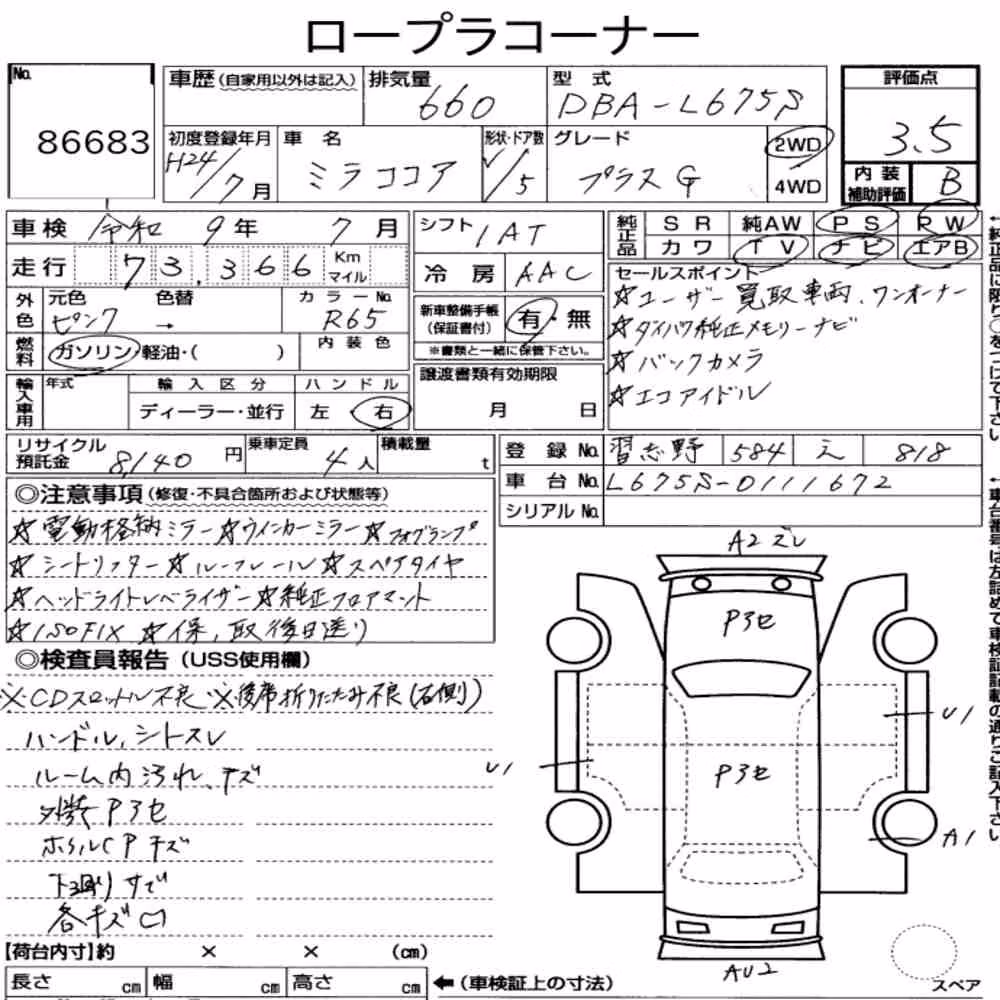 ロープラコーナー
No. 86683
車歴(自家用以外は記入) 排気量 660 型式 DBA-L675S 評価点 3.5
初度登録年月 H24/7月 車名 ミラココア 形状・ドア数 /5 グレード プラスG 2WD 4WD
内装補助評価 B
車検 令和 9年 7月 シフト IAT 純正品 SR 純AW PS PW
カワ TV ナビ エアB
走行 73,366 Km マイル 冷房 AAC
セールスポイント
☆ユーザー買取車両、ワンオーナー
☆ダイハツ純正メモリーナビ
☆バックカメラ
☆エコアイドル
外色 元色 ピンク 色替 → カラーNo. R65
新車整備手帳(保証書付) 有・無
※書類と一緒に保管下さい。
燃料 ガソリン・軽油・( ) 内装色
譲渡書類有効期限 月 日
輸入車用 年式 輸入区分 ハンドル
ディーラー・並行 左・右
リサイクル預託金 8140円 乗車定員 4人 積載量 t
登録No. 習志野 584 え 818
車台No. L675S-0111672
シリアルNo.
←純正品に限り○をつけて下さい。
←車台番号は左詰めで車検証記載の通りご記入下さい。
◎注意事項(修復・不具合箇所および状態等)
☆電動格納ミラー☆ウインカーミラー☆フォグランプ
☆シートリフター☆ルーフレール☆スペアタイヤ
☆ヘッドライトレベライザー☆純正フロアマット
☆ISOFIX ☆保、取後日送り
◎検査員報告(USS使用欄)
※CDスロットル不良 ※後席折りたたみ不良(右側)
ハンドル、シトスレ
ルーム内汚れ、キズ
外装Pヲセ
ホイルCPキズ
下廻りサビ
各キズ凹
A2ズレ
Pヲセ
U1
Pヲセ
U1
A1
AU2
スペア
【荷台内寸】約 × × (cm)
長さ cm 幅 cm 高さ cm ←(車検証上の寸法)